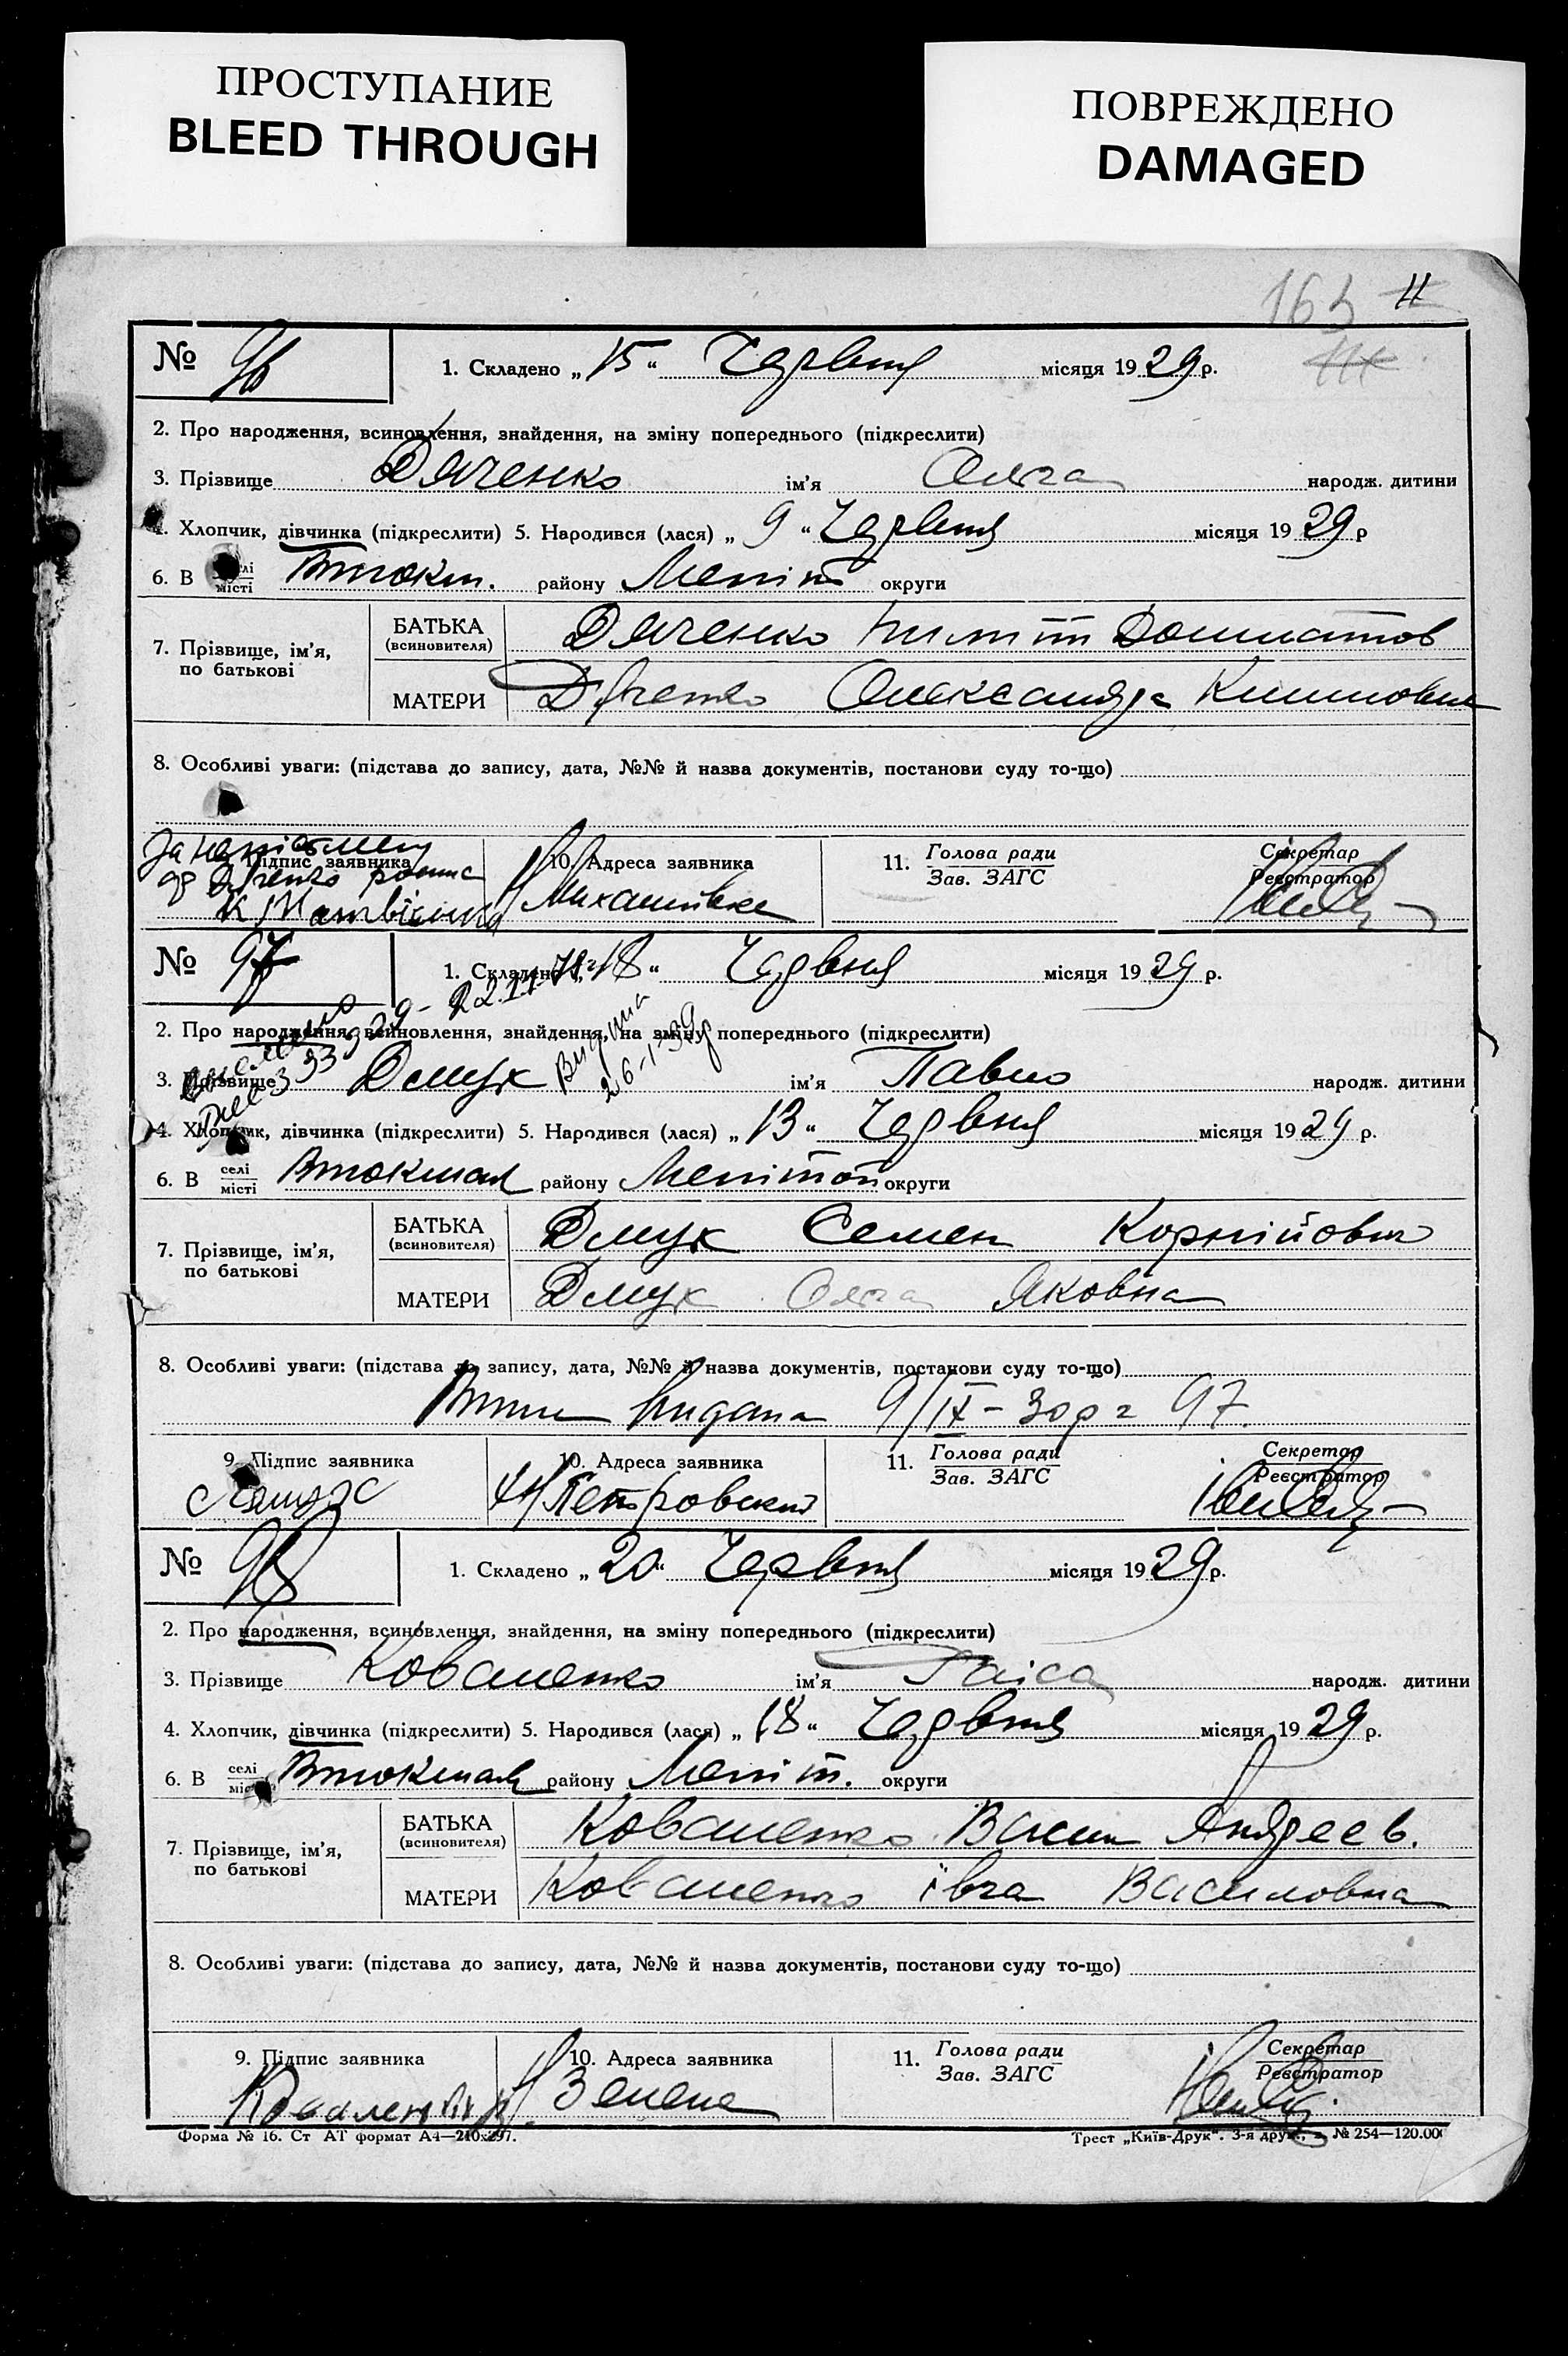 ПРОСТУПАНИЕ
BLEED THROUGH
ПОВРЕЖДЕНО
DAMAGED
163 11
№ 96 1. Складено „15“ Червня місяця 1929 р.
2. Про народження, всиновлення, знайдення, на зміну попереднього (підкреслити)
3. Прізвище Дяченко ім'я Ольга народж. дитини
4. Хлопчик, дівчинка (підкреслити) 5. Народився (лася) „9“ Червня місяця 1929 р
6. В селі місті району Меліт округи
7. Прізвище, ім'я, по батькові
БАТЬКА (всиновителя) Дяченко
МАТЕРИ Дяченко Олександра Климовна
8. Особливі уваги: (підстава до запису, дата, №№ й назва документів, постанови суду то-що)
За неписьмен
гр Дяченко
Підпис заявника
10. Адреса заявника
Михайлівка
11. Голова ради
Зав. ЗАГС
Секретар
Реєстратор
№ 97 1. Складено „18“ Червня місяця 1929 р.
2. Про народження, всиновлення, знайдення, на зміну попереднього (підкреслити)
Видана
26-1-39р
3. Прізвище Дмук ім'я Павло народж. дитини
4. Хлопчик, дівчинка (підкреслити) 5. Народився (лася) „13“ Червня місяця 1929 р.
6. В селі місті району Мелітоп округи
7. Прізвище, ім'я, по батькові
БАТЬКА (всиновителя) Дмук Семен Корнійович
МАТЕРИ Дмук Ольга Яковна
8. Особливі уваги: (підстава до запису, дата, №№ й назва документів, постанови суду то-що)
видана 9/IX-30р г 97.
9. Підпис заявника
10. Адреса заявника
Петровский
11. Голова ради
Зав. ЗАГС
Секретар
Реєстратор
№ 98 1. Складено „20“ Червня місяця 1929 р.
2. Про народження, всиновлення, знайдення, на зміну попереднього (підкреслити)
3. Прізвище Коваленко ім'я Раіса народж. дитини
4. Хлопчик, дівчинка (підкреслити) 5. Народився (лася) „18“ Червня місяця 1929 р.
6. В селі місті району Меліт. округи
7. Прізвище, ім'я, по батькові
БАТЬКА (всиновителя) Коваленко Васил Андреев.
МАТЕРИ Коваленко Івга Василовна
8. Особливі уваги: (підстава до запису, дата, №№ й назва документів, постанови суду то-що)
9. Підпис заявника
Коваленко
10. Адреса заявника
Зелене
11. Голова ради
Зав. ЗАГС
Секретар
Реєстратор
Форма № 16. Ст АТ формат А4—210х297.
Трест „Київ-Друк“. 3-я друк., з. № 254—120.000